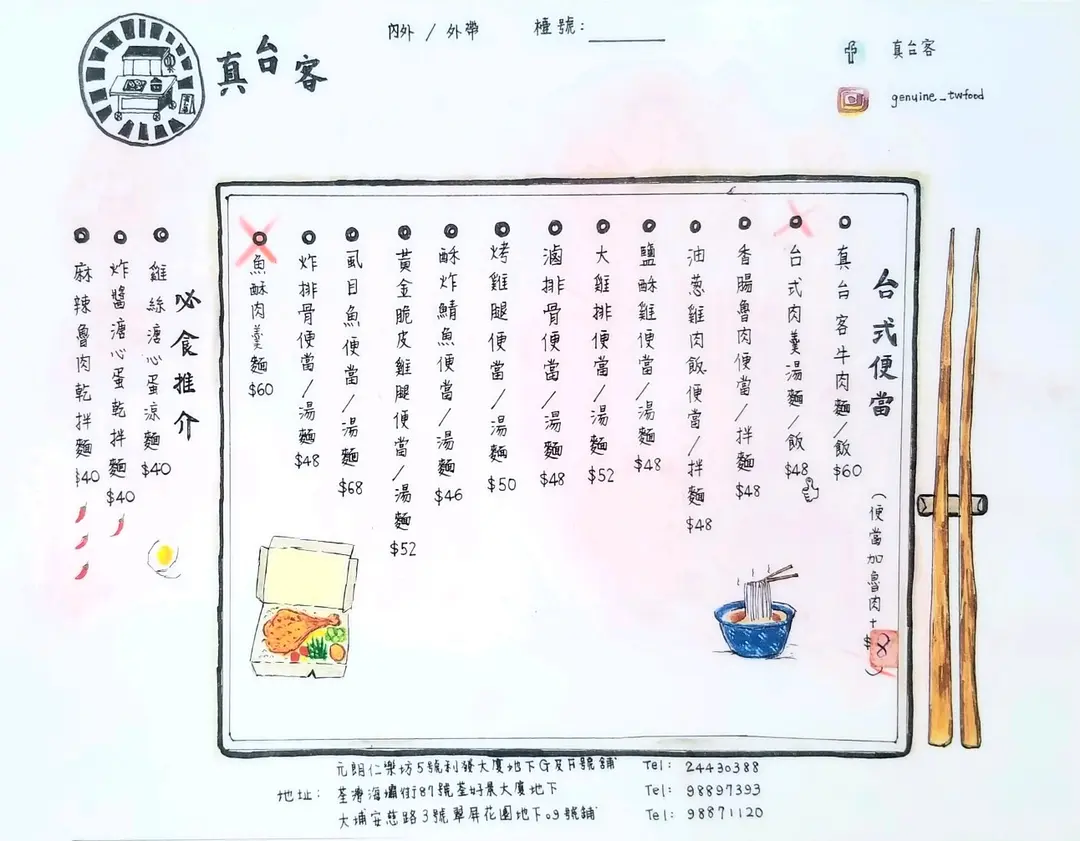 真台客
內外 / 外帶
檯號：
真台客
genuine_twfood
台式便當
（便當加魯肉+$8）
真台客牛肉麵/飯 $60
台式肉羹湯麵/飯 $48
香腸魯肉便當/拌麵 $48
油蔥雞肉飯便當/拌麵 $48
鹽酥雞便當/湯麵 $48
大雞排便當/湯麵 $52
滷排骨便當/湯麵 $48
烤雞腿便當/湯麵 $50
酥炸鯖魚便當/湯麵 $46
黃金脆皮雞腿便當/湯麵 $52
虱目魚便當/湯麵 $68
炸排骨便當/湯麵 $48
魚酥肉羹麵 $60
必食推介
雞絲溏心蛋涼麵 $40
炸醬溏心蛋乾拌麵 $40
麻辣魯肉乾拌麵 $40
地址：
元朗仁樂坊5號利發大廈地下G及H號舖 Tel: 24430388
荃灣海壩街87號荃好景大廈地下 Tel: 98897393
大埔安慈路3號翠屏花園地下09號舖 Tel: 98871120